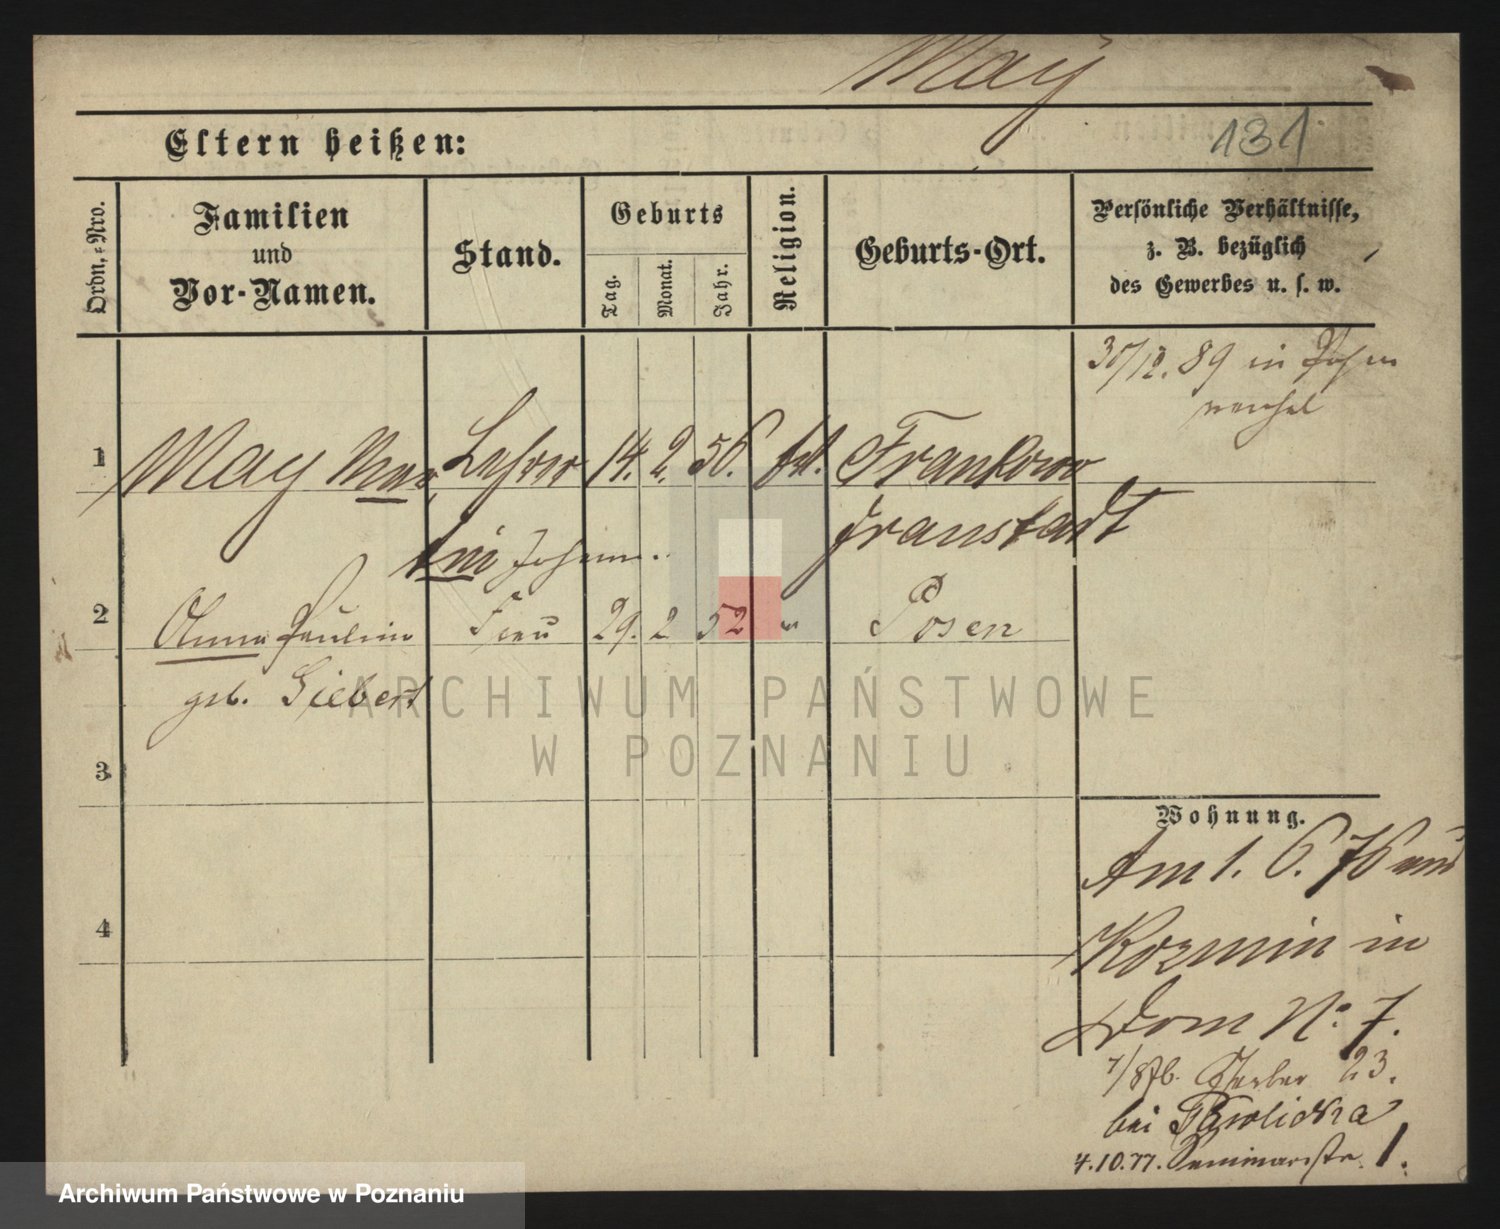 May
131
Eltern heißen:
Ordn.-Nro.
Familien
und
Vor-Namen.
Stand.
Geburts
Tag.
Monat.
Jahr.
Religion.
Geburts-Ort.
Persönliche Verhältnisse,
z. B. bezüglich
des Gewerbes u. s. w.
30/12. 89 in Posen
1 May Lehrer 14. 2. 56. Frankowo
Fraustadt
Johann.
2 Anna Pauline Frau 29. 2 52 " Posen
geb. Siebert
3
4
Wohnung.
Am 1. 6. 76 aus
Kozmin in
Dom No. 7.
7/876. Gerber 23.
bei Pawlicka
4.10.77. Seminarstr. 1.
ARCHIWUM PAŃSTWOWE
W POZNANIU
Archiwum Państwowe w Poznaniu